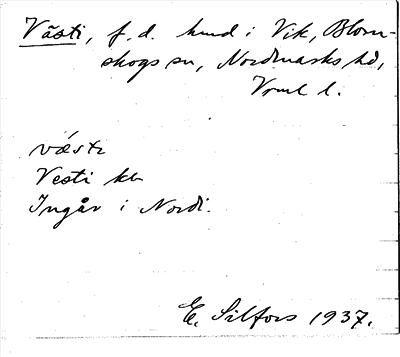 Västi, f.d. hmd i Vik, Blom-
skogs sn, Nordmarks hd,
Vrml l.
væsti
Vesti kb
Ingår i Nordi.
E. Silfors 1937.